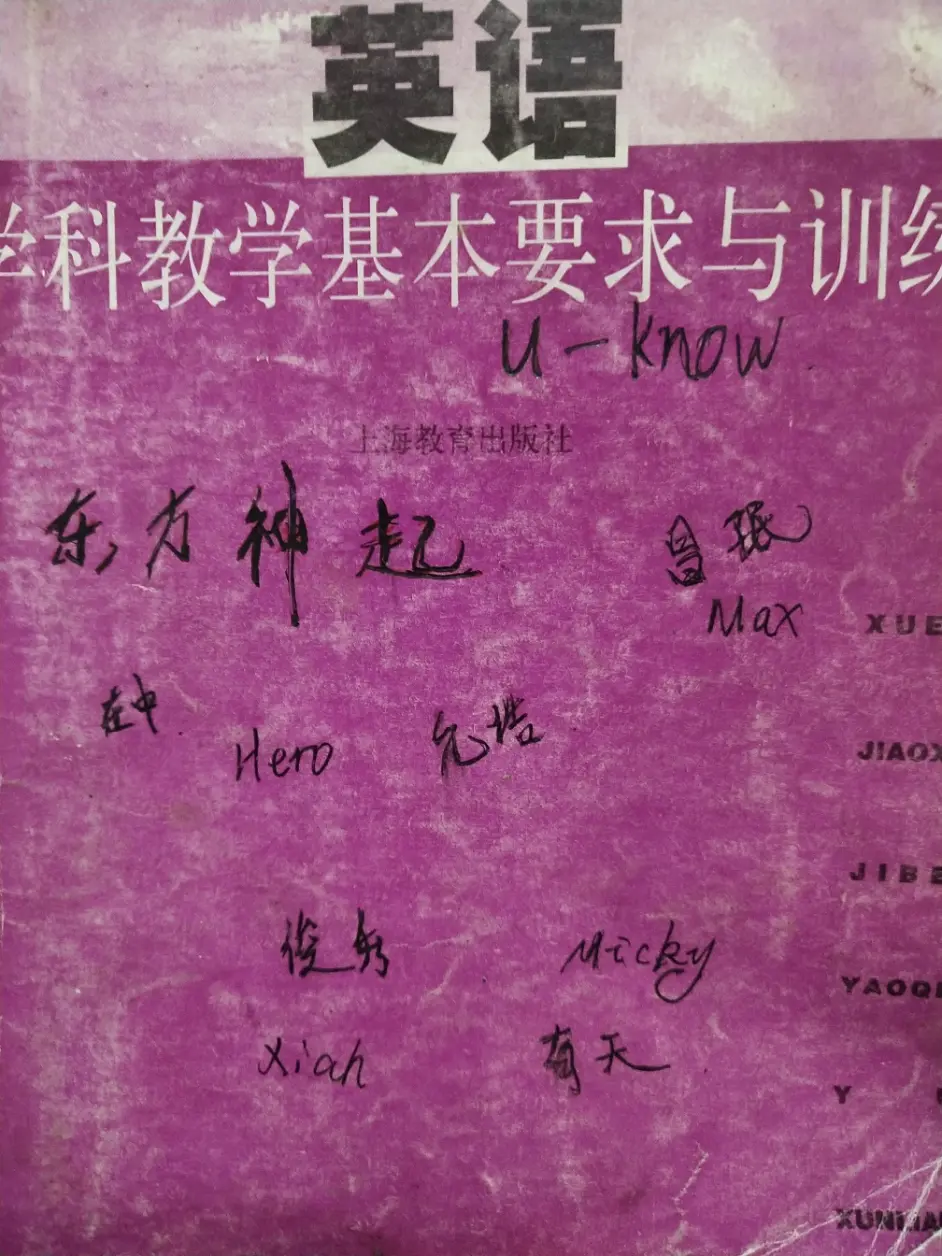 英语
学科教学基本要求与训练
u-know
上海教育出版社
东方神起
昌珉
Max
XUE
JIAOX
在中
Hero
允浩
JIBE
俊秀
Micky
YAOQI
Xiah
有天
Y
XUNLIAN